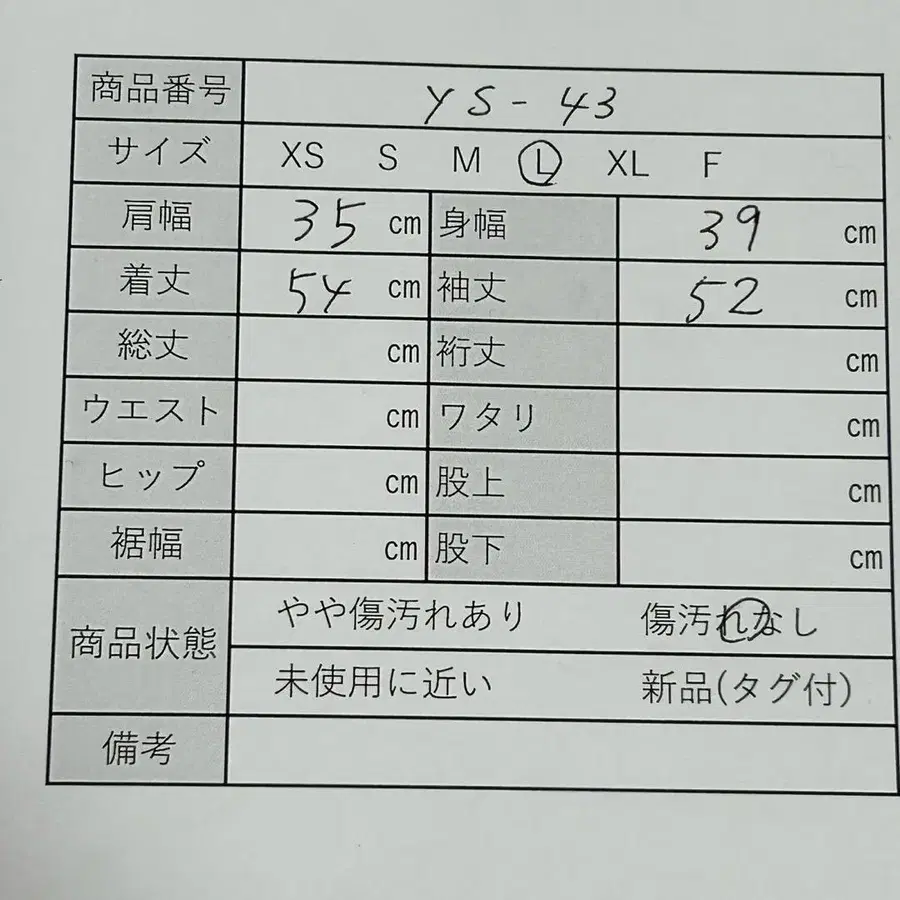 商品番号 YS-43
サイズ XS S M L XL F
肩幅 35 cm 身幅 39 cm
着丈 54 cm 袖丈 52 cm
総丈 cm 裄丈 cm
ウエスト cm ワタリ cm
ヒップ cm 股上 cm
裾幅 cm 股下 cm
商品状態 やや傷汚れあり 傷汚れなし
未使用に近い 新品(タグ付)
備考